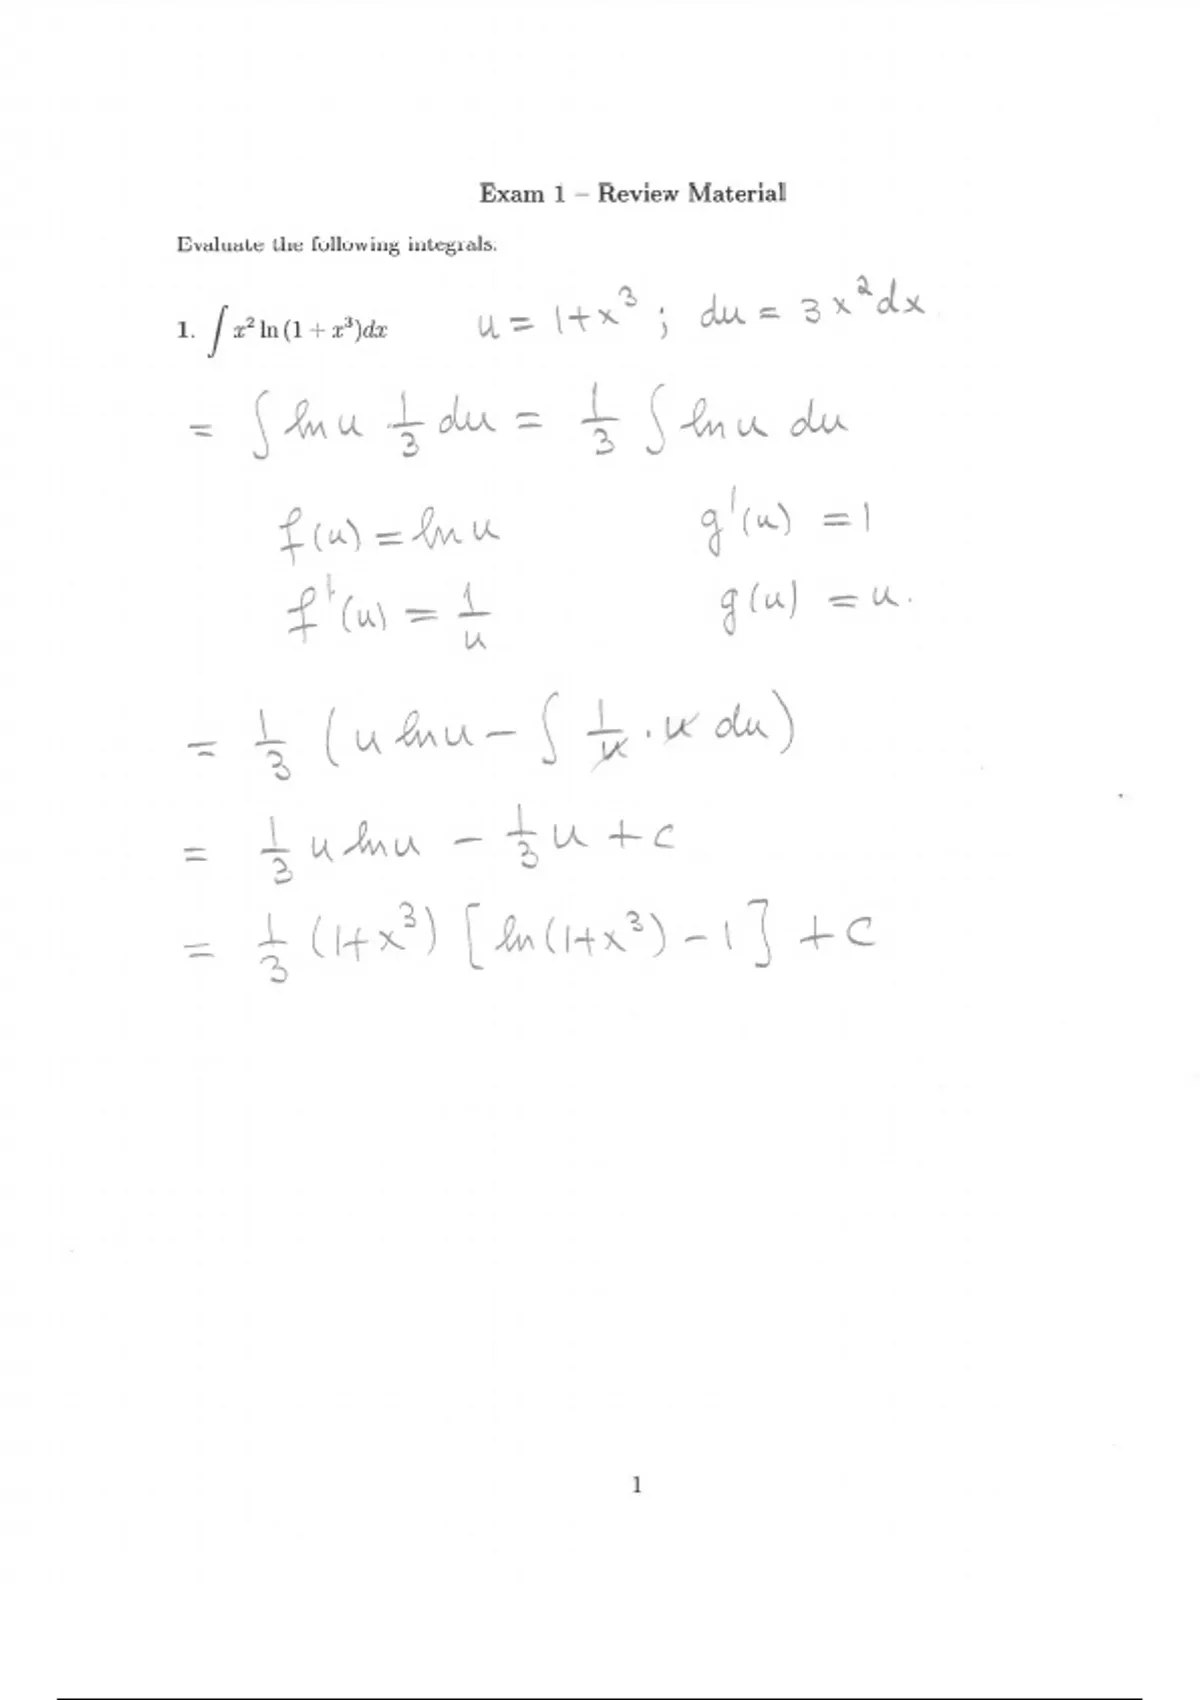 Exam 1 – Review Material
Evaluate the following integrals.
1. ∫ x² ln (1 + x³)dx u = 1+x³ ; du = 3x²dx
= ∫ ln u 1/3 du = 1/3 ∫ ln u du
f(u) = ln u g'(u) = 1
f'(u) = 1/u g(u) = u.
= 1/3 (u ln u – ∫ 1/u · u du)
= 1/3 u ln u – 1/3 u + c
= 1/3 (1+x³) [ln(1+x³) – 1] + c
1